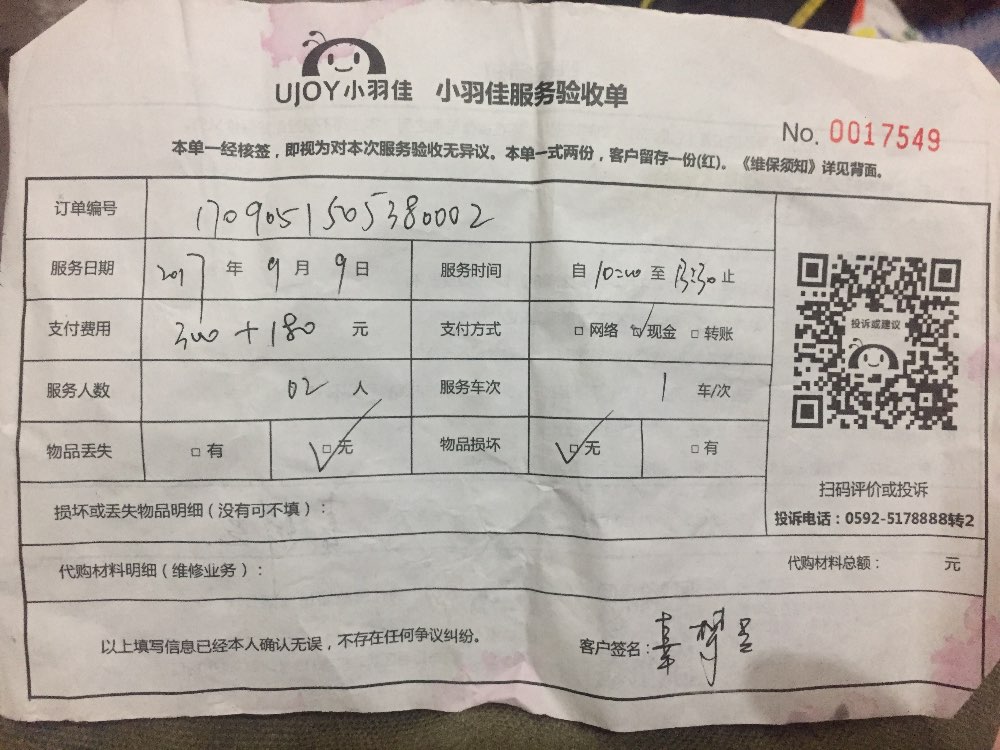 UJOY小羽佳 小羽佳服务验收单
No. 0017549
本单一经核签，即视为对本次服务验收无异议。本单一式两份，客户留存一份(红)。《维保须知》详见背面。
订单编号 1709051505380002
服务日期 2017 年 9 月 9 日 服务时间 自 10:00 至 13:30 止
支付费用 300+180 元 支付方式 □ 网络 ☑ 现金 □ 转账
服务人数 02 人 服务车次 1 车/次
物品丢失 □ 有 ☑ 无 物品损坏 ☑ 无 □ 有
投诉或建议
扫码评价或投诉
投诉电话：0592-5178888转2
损坏或丢失物品明细（没有可不填）：
代购材料明细（维修业务）： 代购材料总额： 元
以上填写信息已经本人确认无误，不存在任何争议纠纷。 客户签名：